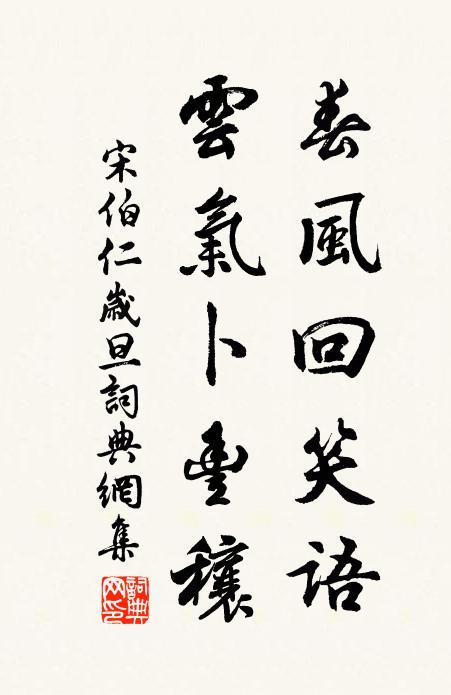 春風回笑語
雲氣卜豐穰
宋伯仁歲旦詞典網集
詞典网印